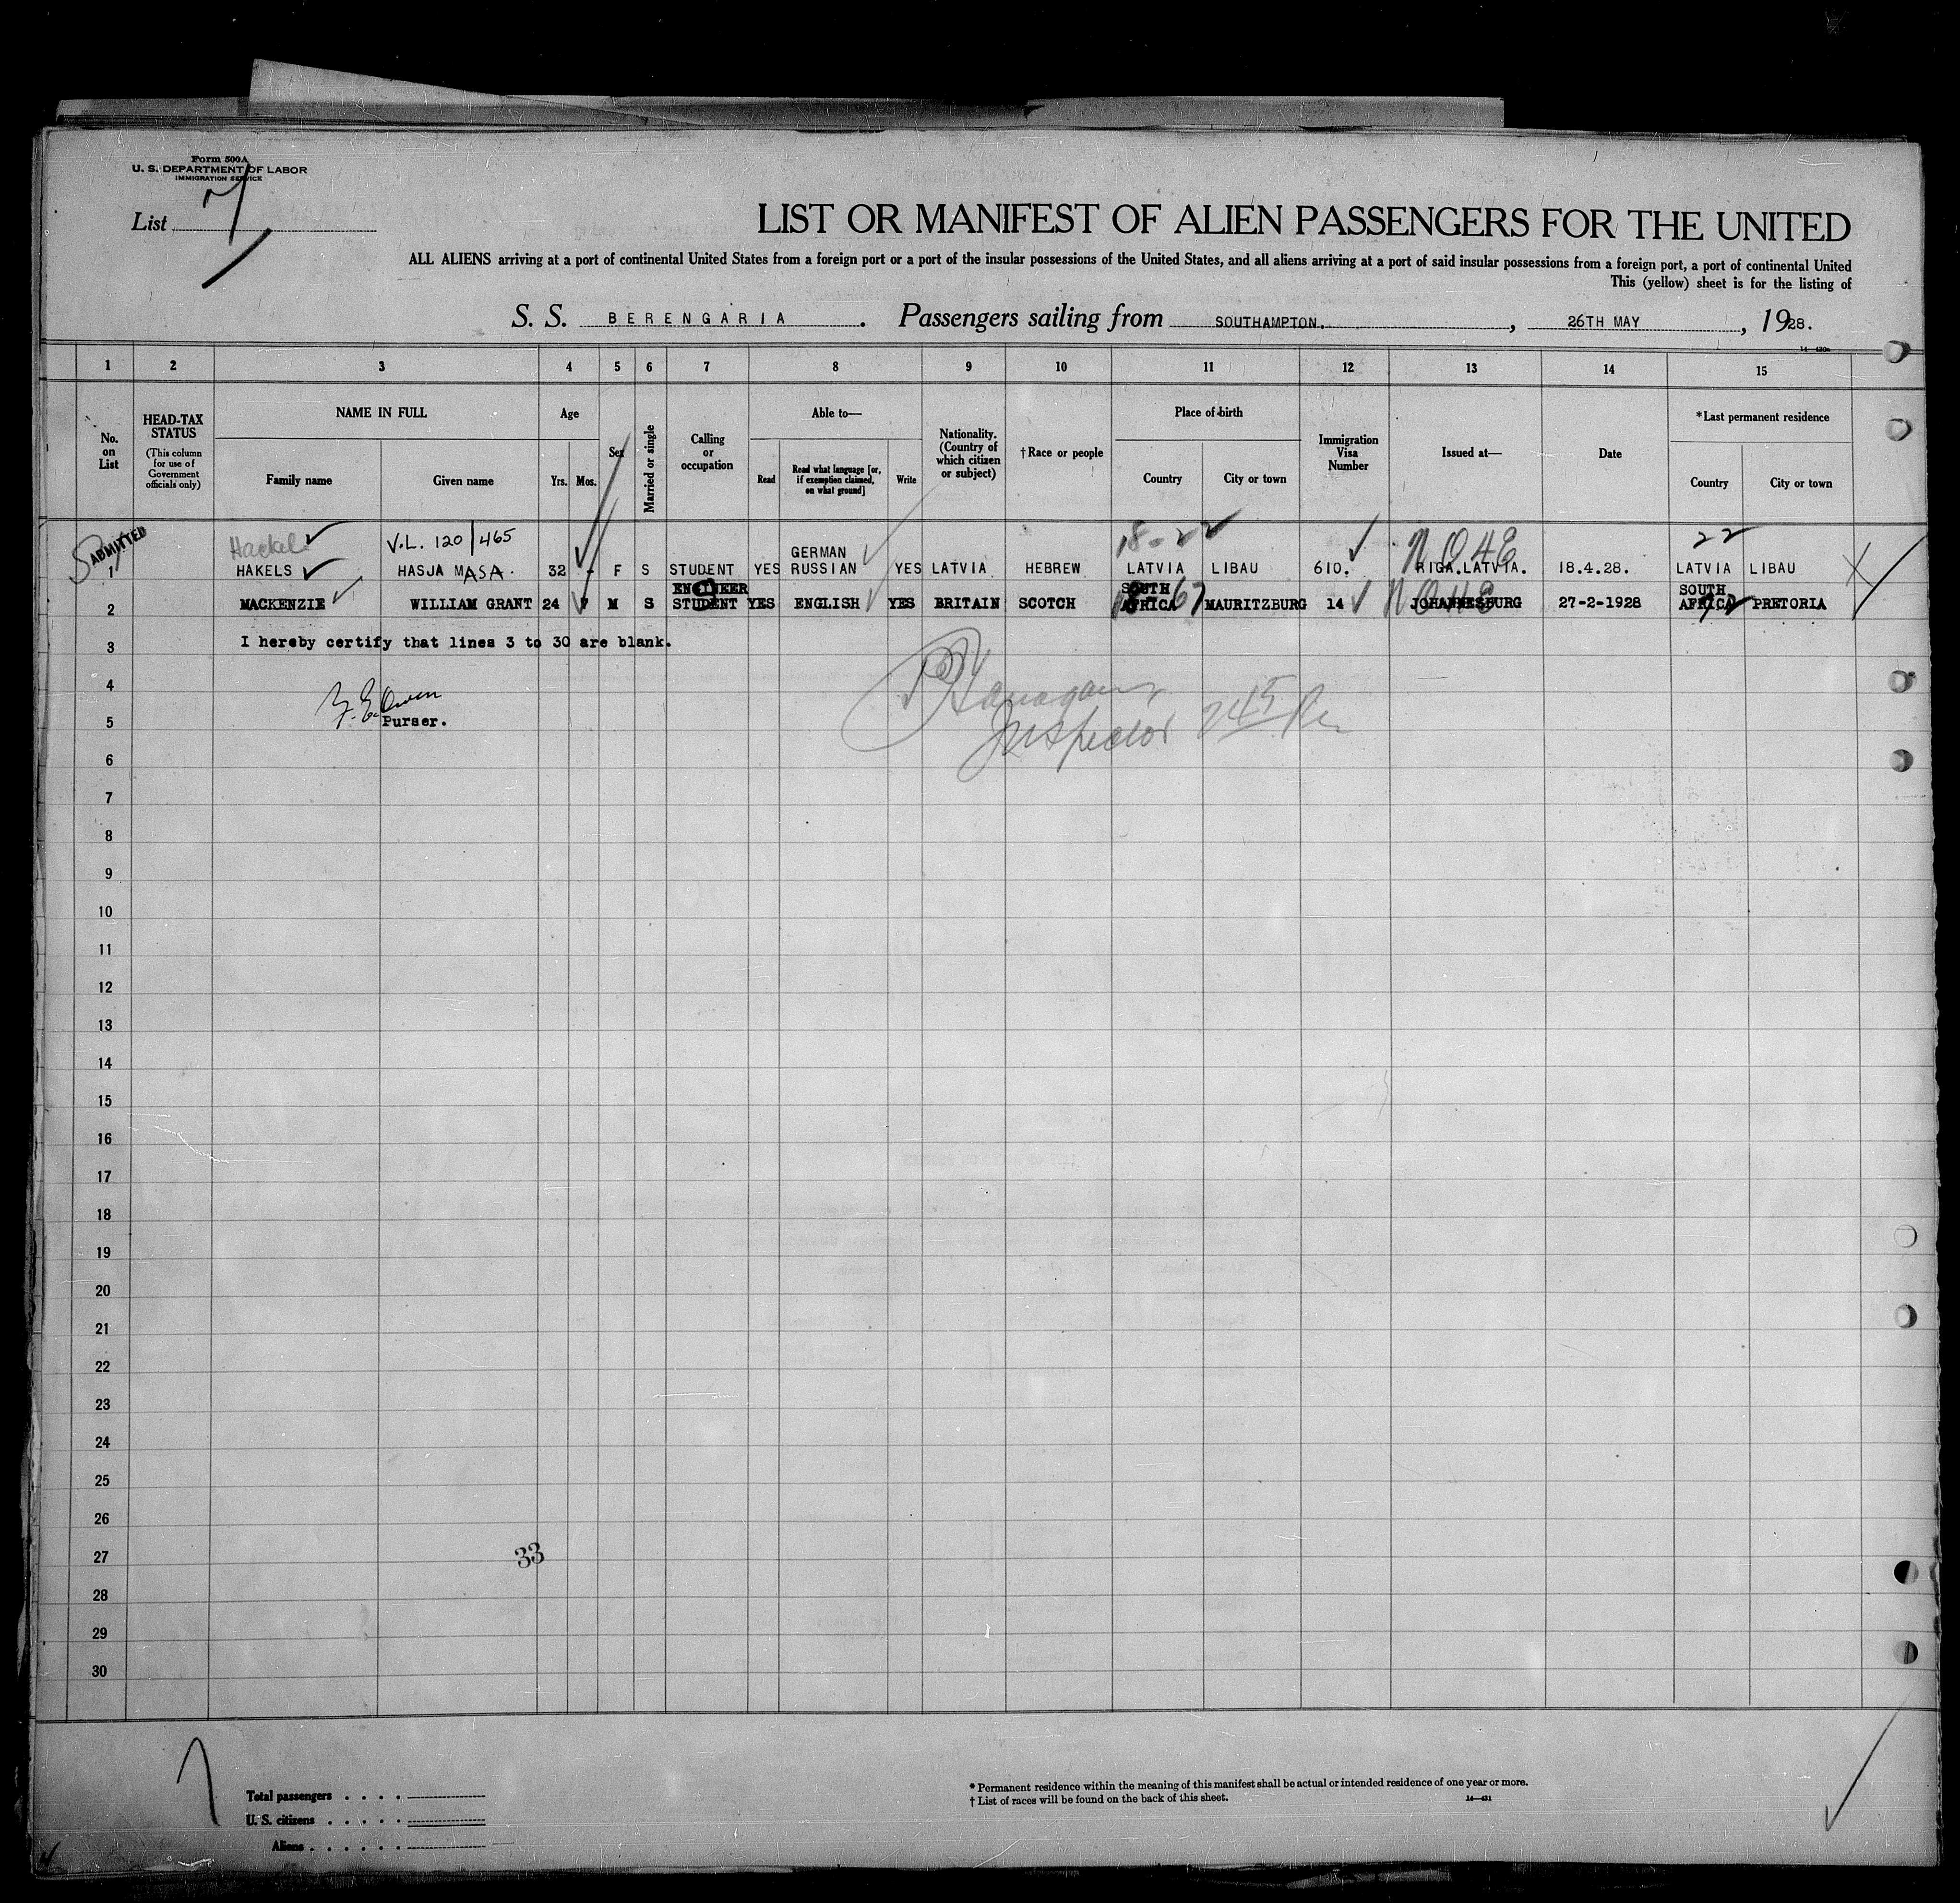 Form 500A
U. S. DEPARTMENT OF LABOR
IMMIGRATION SERVICE
List 7
LIST OR MANIFEST OF ALIEN PASSENGERS FOR THE UNITED
ALL ALIENS arriving at a port of continental United States from a foreign port or a port of the insular possessions of the United States, and all aliens arriving at a port of said insular possessions from a foreign port, a port of continental United
This (yellow) sheet is for the listing of
S. S. BERENGARIA. Passengers sailing from SOUTHAMPTON., 26TH MAY, 1928.
1 2 3 4 5 6 7 8 9 10 11 12 13 14 15
No. on List
HEAD-TAX STATUS (This column for use of Government officials only)
NAME IN FULL
Family name Given name
Age
Yrs. Mos.
Sex
Married or single
Calling or occupation
Able to—
Read
Read what language [or, if exemption claimed, on what ground]
Write
Nationality. (Country of which citizen or subject)
†Race or people
Place of birth
Country City or town
Immigration Visa Number
Issued at—
Date
*Last permanent residence
Country City or town
ADMITTED
Hackel V.L. 120/465 GERMAN 18-22 NOHE 22
1 HAKELS HASJA MASA. 32 - F S STUDENT YES RUSSIAN YES LATVIA HEBREW LATVIA LIBAU 610. RIGA.LATVIA. 18.4.28. LATVIA LIBAU
ENGINEER SOUTH SOUTH
2 MACKENZIE WILLIAM GRANT 24 M S STUDENT YES ENGLISH YES BRITAIN SCOTCH AFRICA MAURITZBURG 14 JOHANNESBURG 27-2-1928 AFRICA PRETORIA
3 I hereby certify that lines 3 to 30 are blank.
4
5 Purser.
Inspector
6
7
8
9
10
11
12
13
14
15
16
17
18
19
20
21
22
23
24
25
26
27 33
28
29
30
Total passengers
U.S. citizens
Aliens
* Permanent residence within the meaning of this manifest shall be actual or intended residence of one year or more.
† List of races will be found on the back of this sheet.
14—431